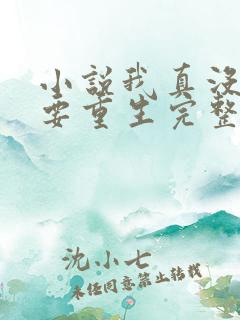 小说我真没
要重生完整
沈小七
未经同意禁止转载